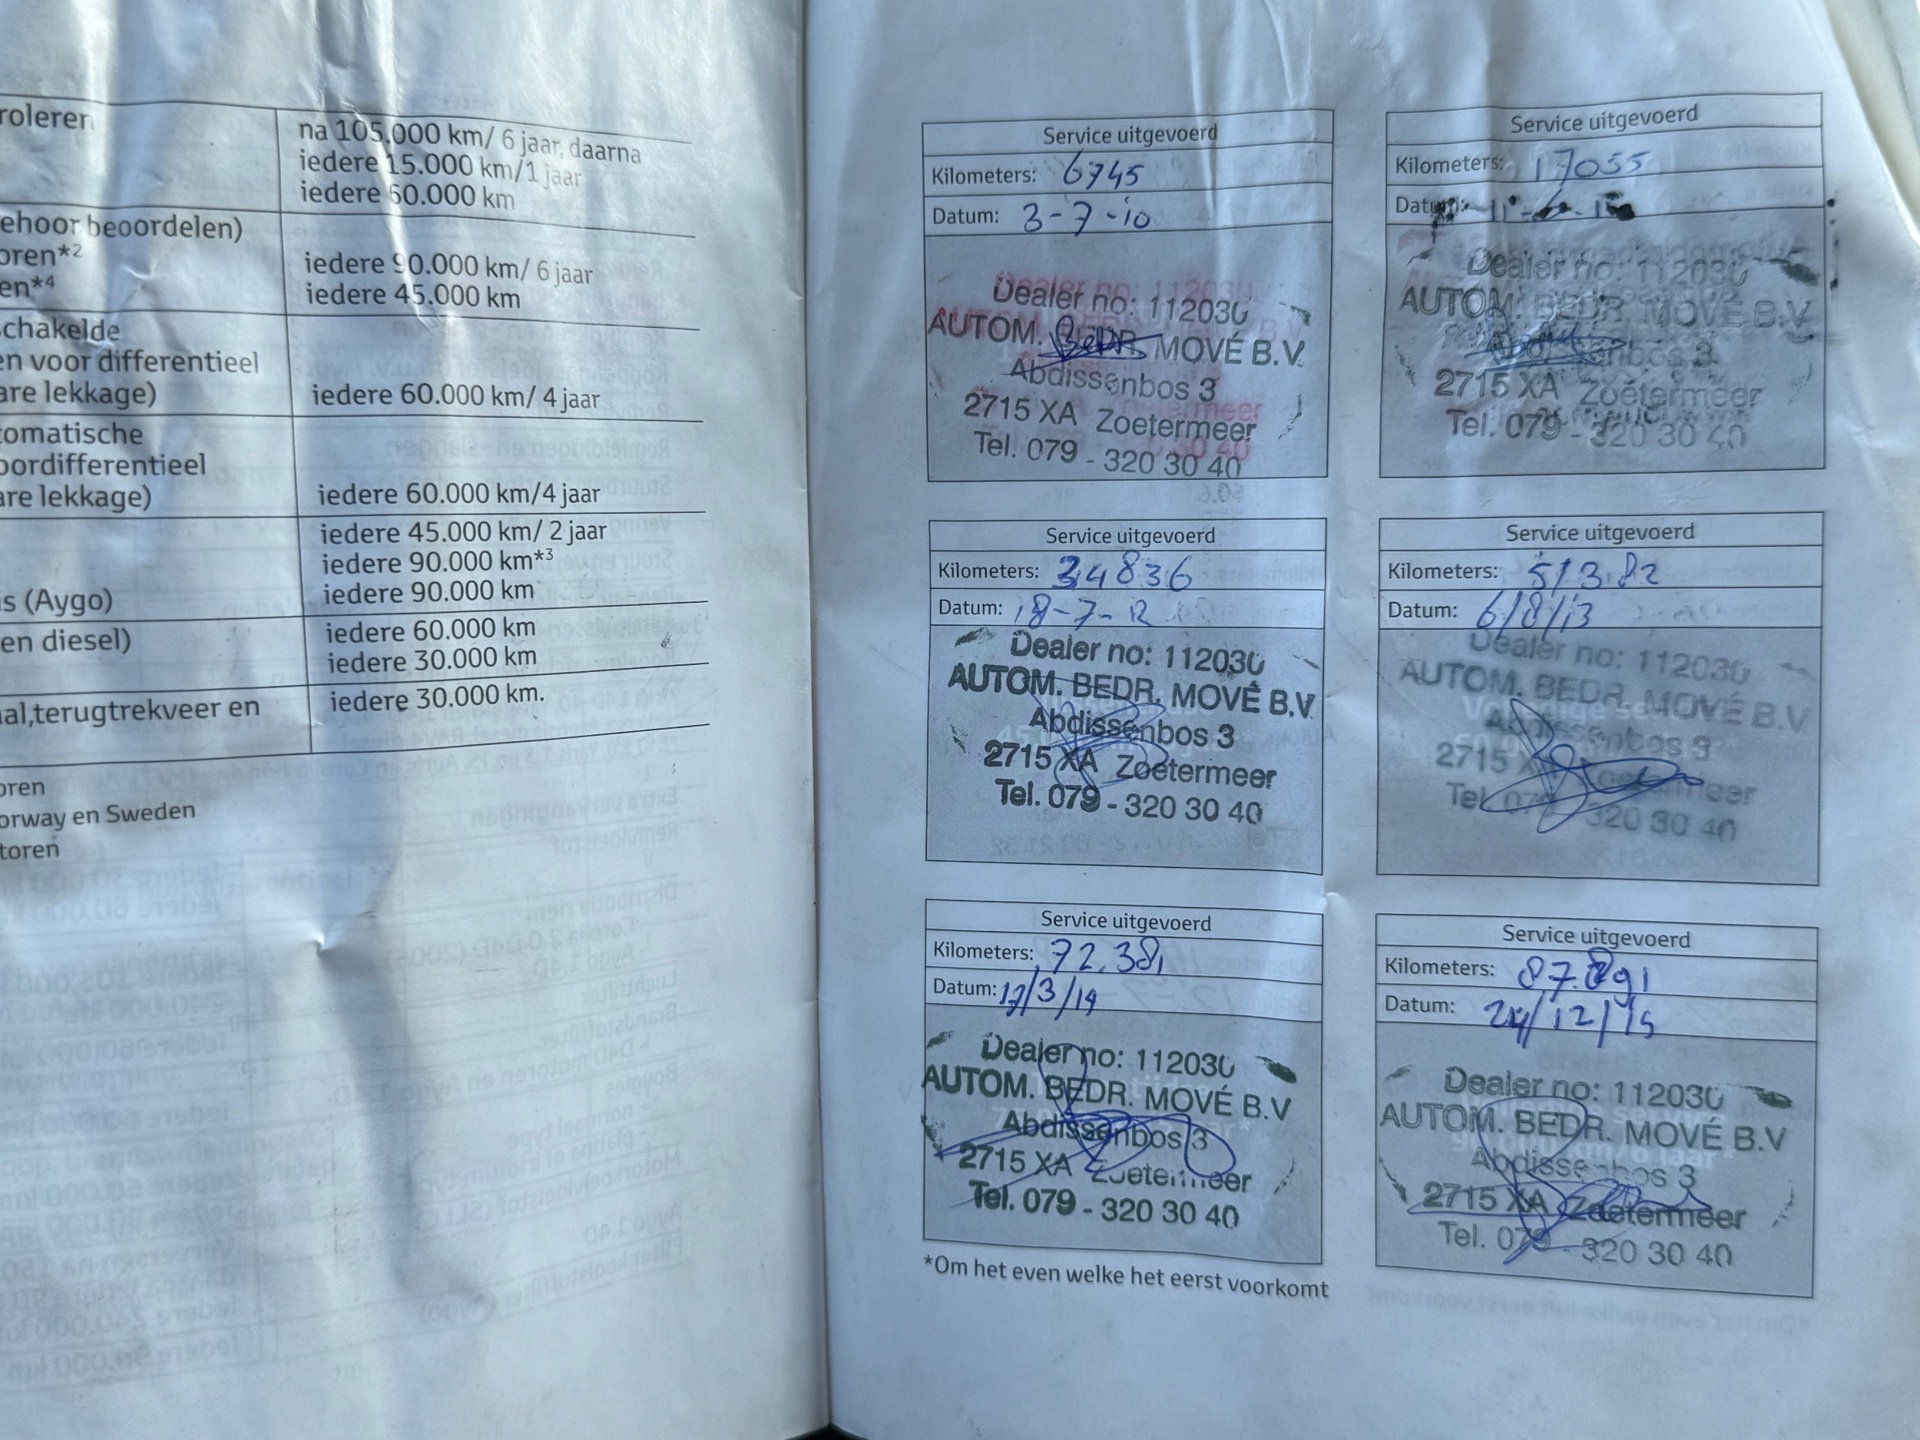 roleren
na 105.000 km/ 6 jaar, daarna
iedere 15.000 km/1 jaar
iedere 60.000 km
ehoor beoordelen)
oren*2
iedere 90.000 km/ 6 jaar
en*4
iedere 45.000 km
schakelde
en voor differentieel
are lekkage)
iedere 60.000 km/ 4 jaar
tomatische
oordifferentieel
are lekkage)
iedere 60.000 km/4 jaar
iedere 45.000 km/ 2 jaar
iedere 90.000 km*3
is (Aygo)
iedere 90.000 km
en diesel)
iedere 60.000 km
iedere 30.000 km
al,terugtrekveer en
iedere 30.000 km.
oren
orway en Sweden
toren
Service uitgevoerd
Kilometers: 6745
Datum: 3-7-10
Dealer no: 112030
AUTOM. BEDR. MOVÉ B.V.
Abdissenbos 3
2715 XA Zoetermeer
Tel. 079 - 320 30 40
Service uitgevoerd
Kilometers: 17055
Datum:
Dealer no: 112030
AUTOM. BEDR. MOVÉ B.V.
Abdissenbos 3
2715 XA Zoetermeer
Tel. 079 - 320 30 40
Service uitgevoerd
Kilometers: 34836
Datum: 18-7-12
Dealer no: 112030
AUTOM. BEDR. MOVÉ B.V.
Abdissenbos 3
2715 XA Zoetermeer
Tel. 079 - 320 30 40
Service uitgevoerd
Kilometers: 51382
Datum: 6/8/13
Dealer no: 112030
AUTOM. BEDR. MOVÉ B.V
Abdissenbos 3
2715 XA Zoetermeer
Tel. 079 - 320 30 40
Service uitgevoerd
Kilometers: 72.381
Datum: 17/3/14
Dealer no: 112030
AUTOM. BEDR. MOVÉ B.V
Abdissenbos 3
2715 XA Zoetermeer
Tel. 079 - 320 30 40
*Om het even welke het eerst voorkomt
Service uitgevoerd
Kilometers: 87.891
Datum: 24/12/15
Dealer no: 112030
AUTOM. BEDR. MOVÉ B.V
Abdissenbos 3
2715 XA Zoetermeer
Tel. 079 - 320 30 40